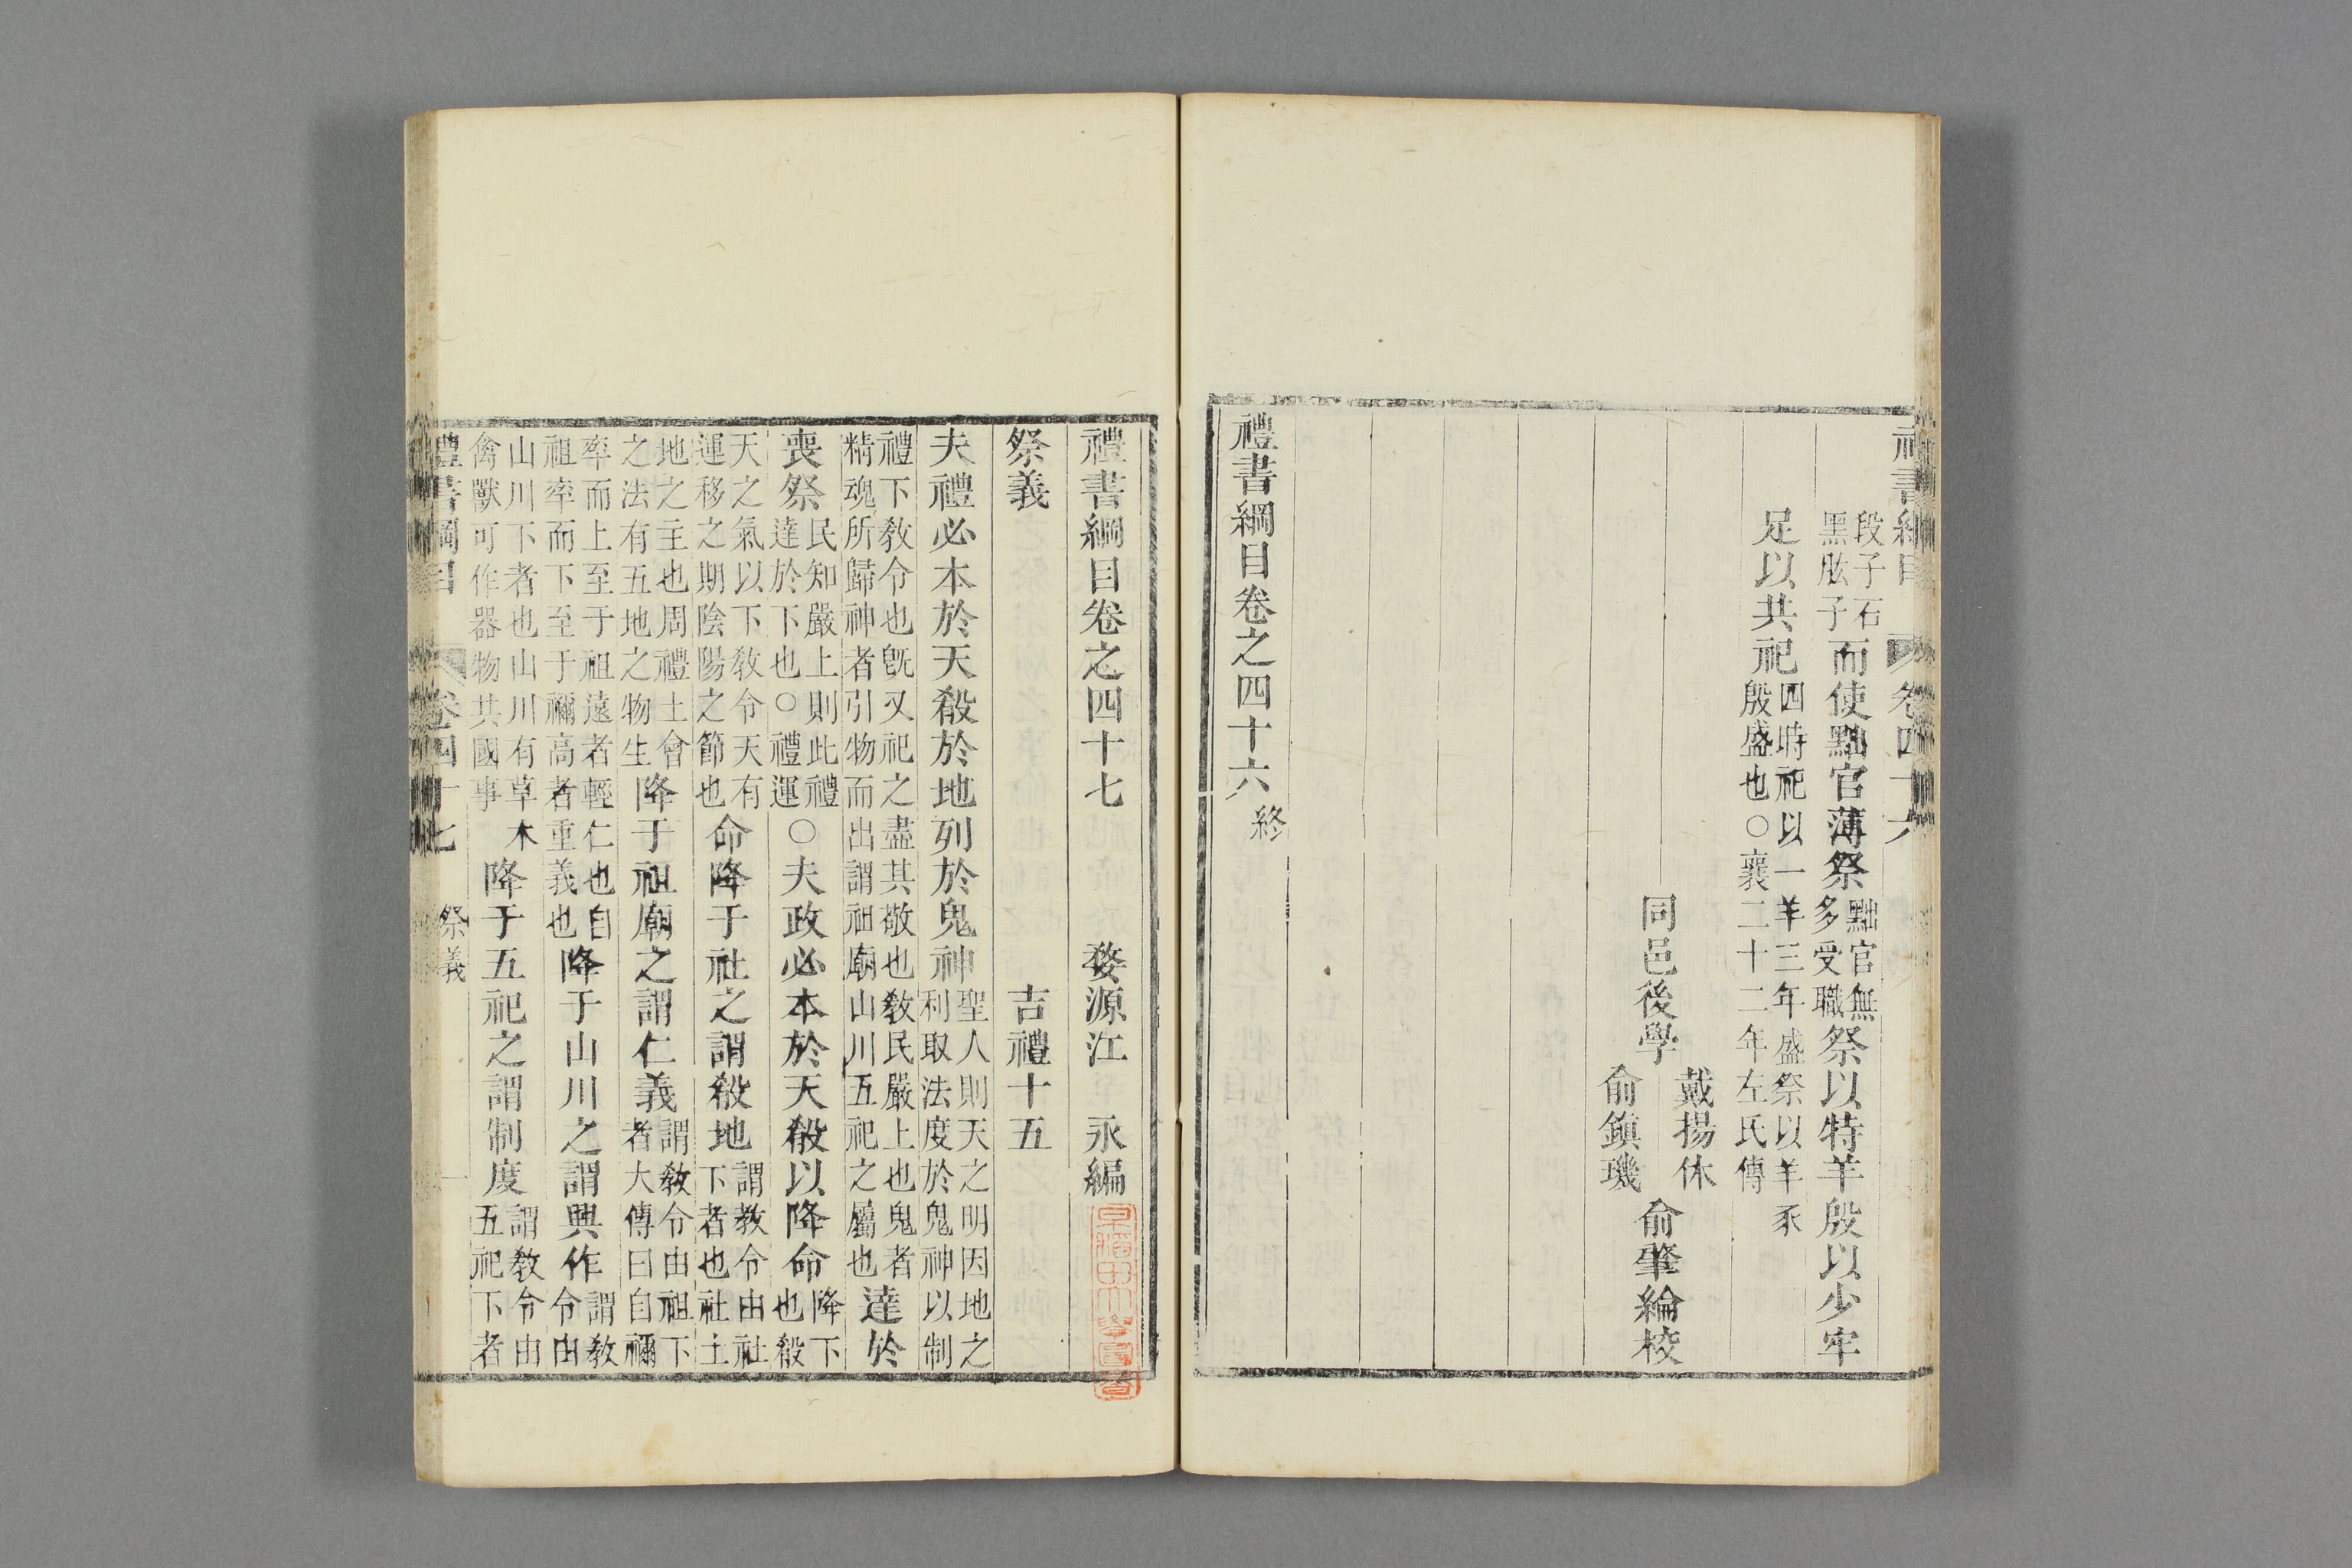 禮書綱目 卷四十六
段子石黑肱子而使黜官薄祭黜官無多受職祭以特羊殷以少牢
足以共祀四時祀以一羊三年盛祭以羊豕殷盛也○襄二十二年左氏傳
同邑後學 戴揚休 俞鎮璣 俞肇綸校
禮書綱目卷之四十六終
禮書綱目卷之四十七 婺源江 永編
早稻田大學圖書
祭義 吉禮十五
夫禮必本於天殽於地列於鬼神聖人則天之明因地之利取法度於鬼神以制
禮下教令也旣又祀之盡其敬也教民嚴上也鬼者精魂所歸神者引物而出謂祖廟山川五祀之屬也達於
喪祭民知嚴上則此禮達於下也○禮運○夫政必本於天殽以降命降下也殽
天之氣以下教令天有運移之期陰陽之節也命降于社之謂殽地謂教令由社下者也社土
地之主也周禮土會之法有五地之物生降于祖廟之謂仁義謂教令由祖下者大傳曰自禰
率而上至于祖遠者輕仁也自祖率而下至于禰高者重義也降于山川之謂興作謂教令由
山川下者也山川有草木禽獸可作器物共國事降于五祀之謂制度謂教令由五祀下者
禮書綱目 卷四十七 祭義 一